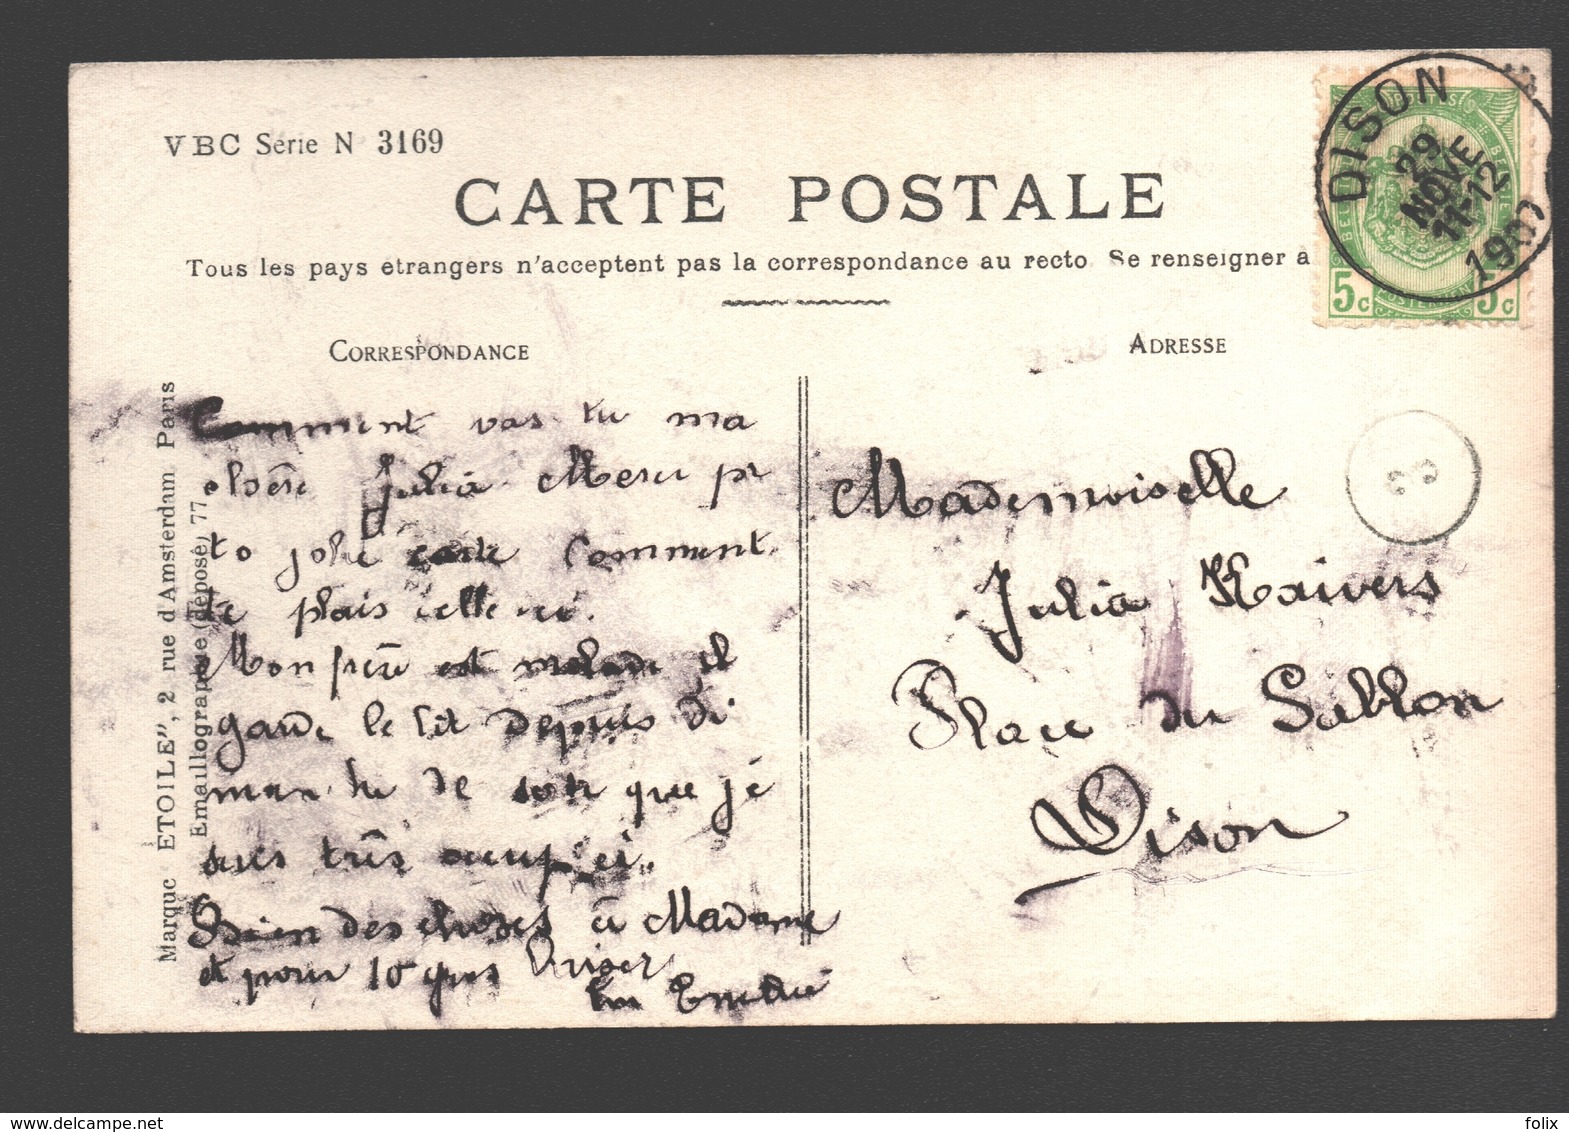 VBC Série N 3169
CARTE POSTALE
Tous les pays etrangers n'acceptent pas la correspondance au recto Se renseigner à
CORRESPONDANCE
ADRESSE
DISON
29
NOVE
11-12
1907
5c 5c
Marque ETOILE", 2 rue d'Amsterdam Paris
Emaillographie (déposé) 77
Comment vas tu ma
chère Julia Merci pr
ta jolie carte Comment
te plais celle ci.
Mon père est malade il
garde le lit depuis di
manche de sorte que je
suis très occupé
Bien des choses à Madame
et pour 10 gros
Mademoiselle
Julia Kaivers
Place du Sablon
Dison
delcampe.net
folix